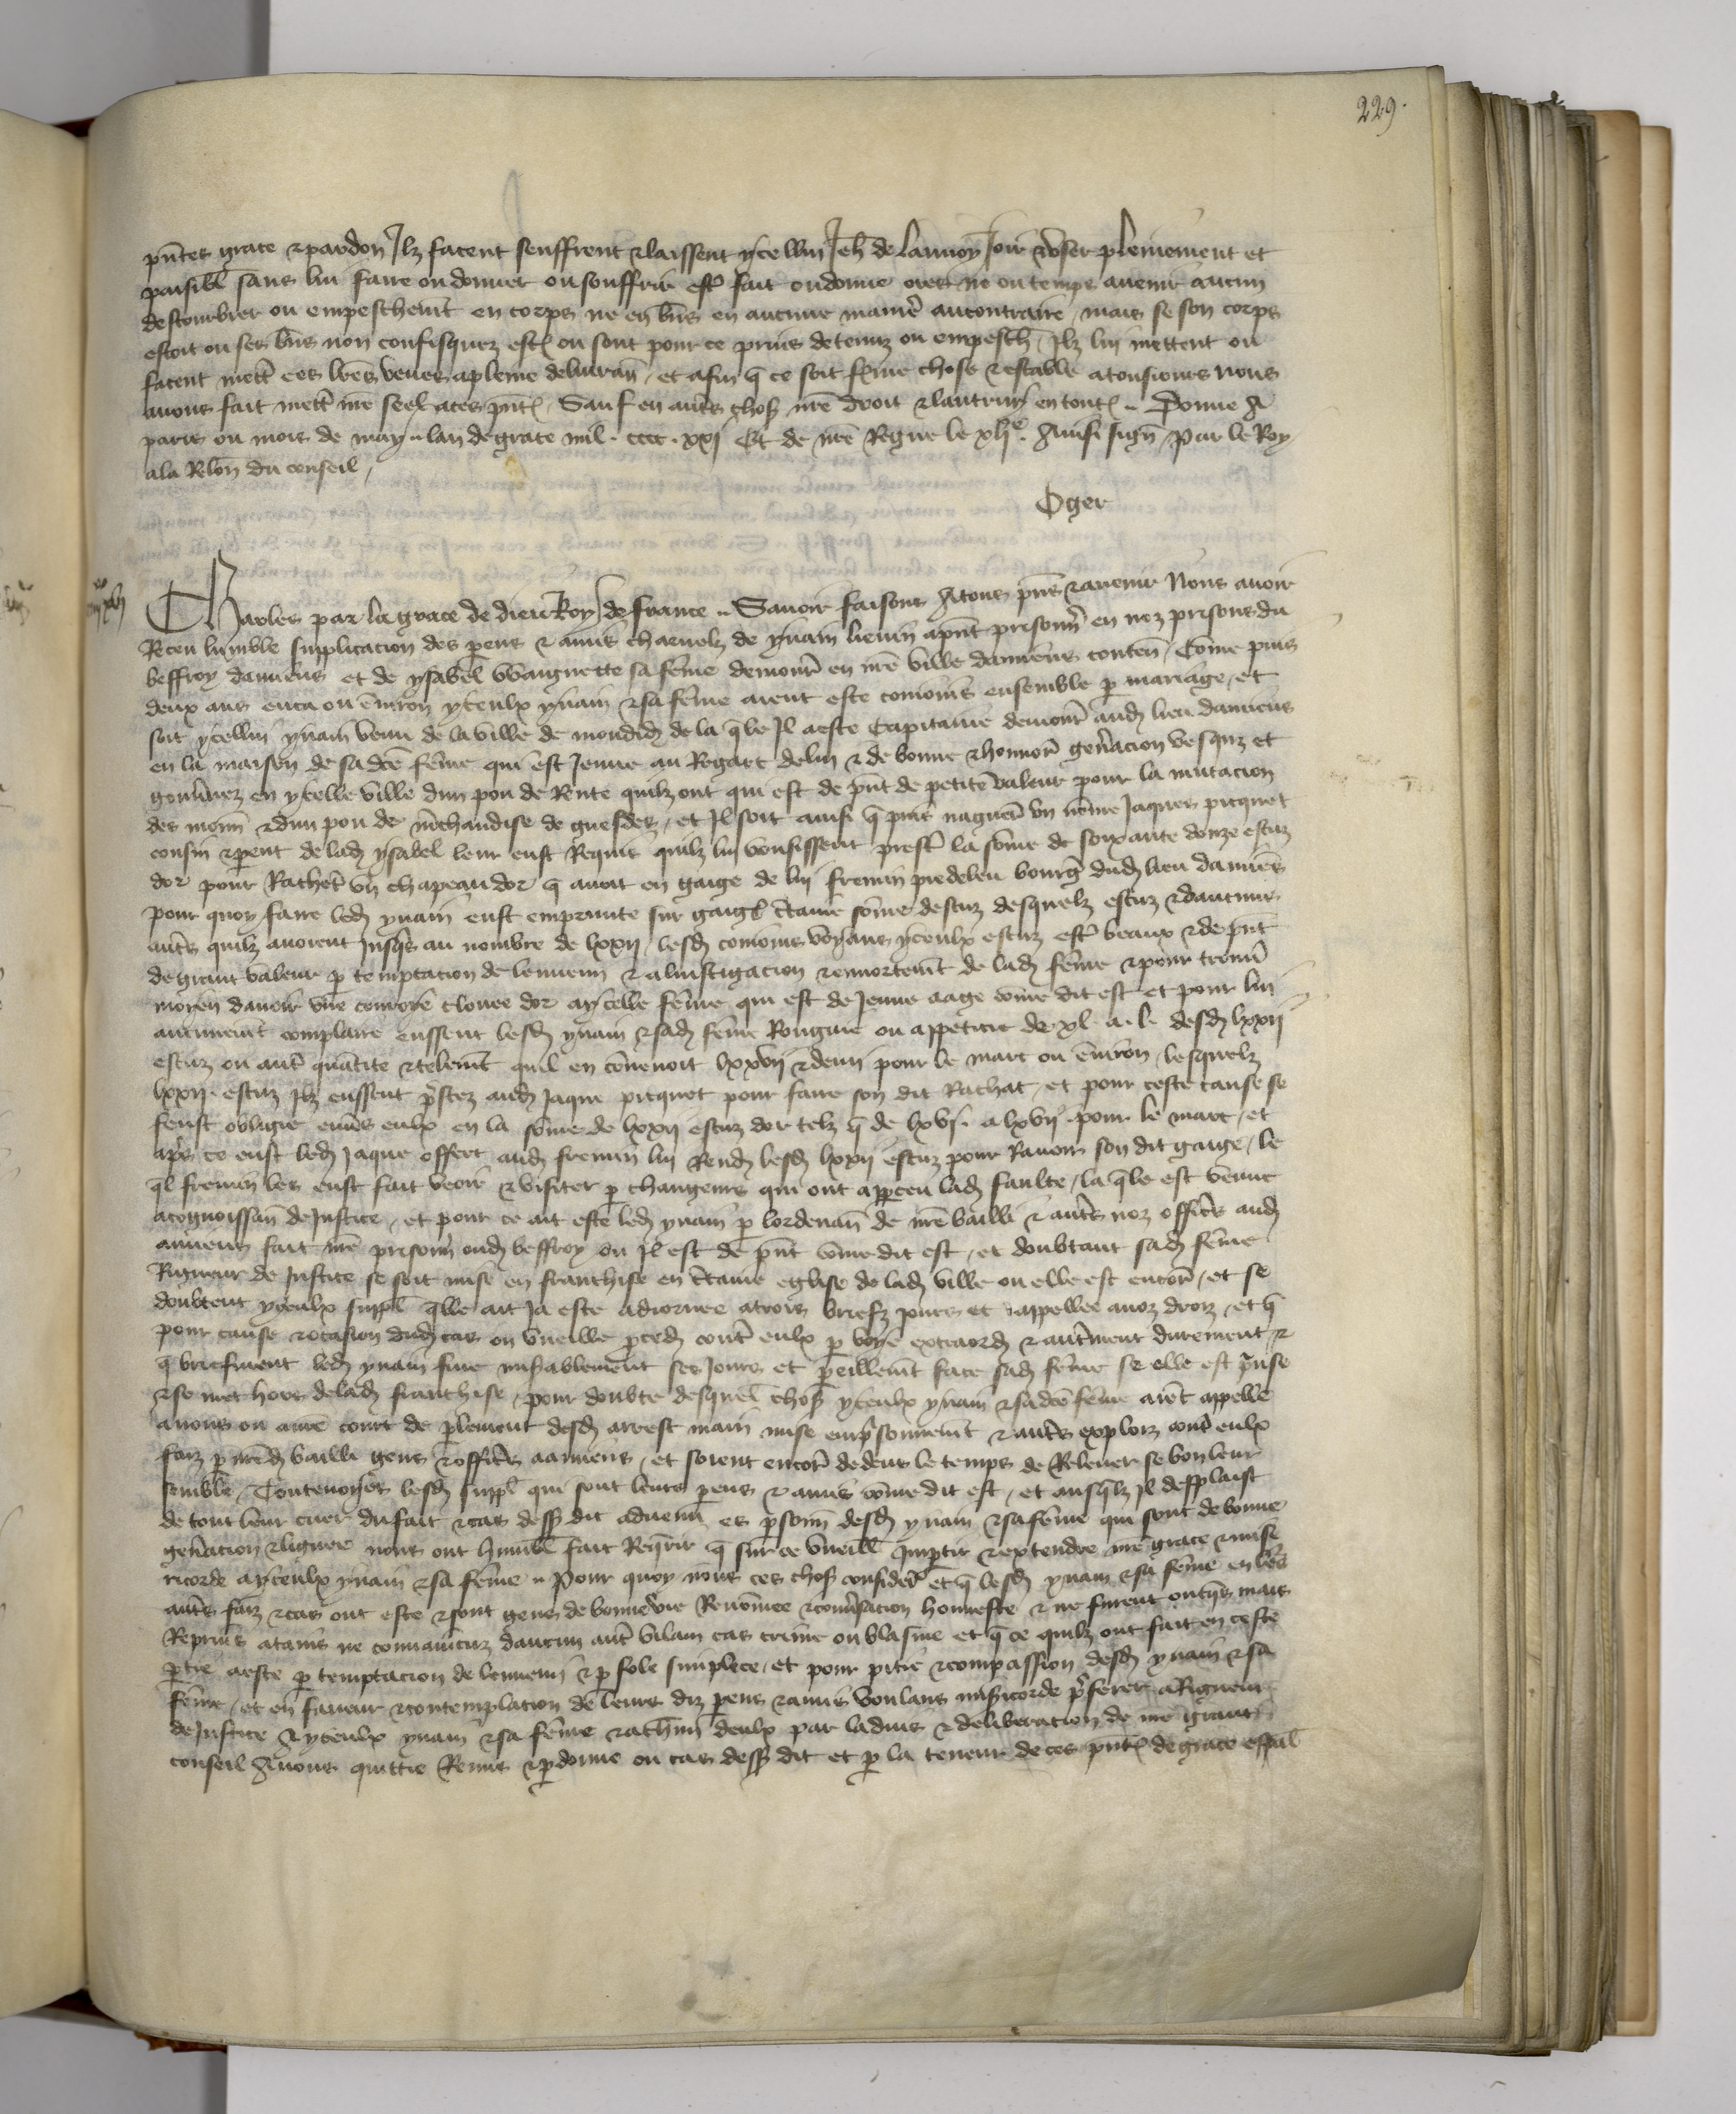 229.
pñtes grace & pardon Ilz facent seuffrent & laissent ycellui Jeh̄ de Lannoy Joir & user plenierement et
paisibl̄ sans lui faire ou donner ou souffrir estr̄ fait ou donne ores ne ou temps avenir aucun
destourbier ou empeschemt̄ en corps ne en bñs en aucune manier̄ au contraire / mais se son corps
estoit ou ses bñs non confisquez estoīt ou sont pour ce prins detenuz ou empesch̄ / Ilz lui mettent ou
facent mettr̄ ces lr̄es veues a pleine delivran̄ / et afin q̄ ce soit ferme chose & estable a tousiours nous
avons fait mettr̄ nr̄e seel a ces pñt̄ / Sauf en autr̄s chos̄ nr̄e droit & lautruy en tout̄ .. Donne A
paris ou mois de may .. lan de grace mil . cccc . xxj Et de nr̄e Regne le xlj^e . Ainsi sign̄ / Par le Roy
a la Relōn du conseil /
Oger
Charles par la grace de dieu Roy de france .. Savoir faisons A tous p̄ns & avenir Nous avoir
Receu lumble supplicacion des par̄ens & amis charnelz de ynain lienin apñt prisonnī en noz prisons du
beffroy damiens et de ysabel Waignette sa fēme demourā en nr̄e ville damiens conten̄ / Cōme puis
deux ans enca ou ēviron yceulx ynain & sa fēme aient este conioins ensemble p̄ mariage / et
soit ycellui ynain venu de la ville de mondid̄ de la q̄le Il a este Capitaine demourr̄ aud̄ lieu damiens
en la maison de sa dc̄e fēme qui est Jeune au Regart de lui & de bonne & honnor̄ gen̄acion vesquz et
gouvnez en ycelle ville dun pou de Rente quilz ont qui est de pñt de petite valeur pour la mutacion
des monn̄ & dun pou de m̄chandise de guesdes / et Il soit ainsi q̄ puis naguers̄ un nōme Jaques picquet
cousin & par̄ent de lad̄ ysabel leur eust Requis quilz lui voulsissent prestr̄ la sōme de soixante douze escuz
dor pour Racheter̄ un chapeau dor q̄ avoit en gaige de luy fremin piedeleu bourḡ dud̄ lieu damiēs
pour quoy faire led̄ ynain eust emprunte sur gaiges c̄taine sōme descuz desquelz escuz & daucuns
autr̄s quilz avoient Jusq̄s au nombre de lxxij / lesd̄ conioins voyans yceulx escuz estr̄ beaux & de pñt
de grant valeur p̄ temptacion de lennemi & a linstigacion & enhortemt̄ de lad̄ fēme & pour trouv̄
moyen davoir une couroye clouee dor a ycelle fēme qui est de Jeune aage cōme dit est et pour lui
aucunemt̄ complaire eussent lesd̄ ynain & sad̄ fēme Rongnie ou appeticie de xl. a. l. desd̄ lxxij
escuz ou autr̄ quātite & telemt̄ quil en cōvenoit lxxvij & demi pour le marc ou ēviron / lesquelz
lxxij . escuz Ilz eussent p̄stez aud̄ Jaque picquet pour faire son dit Rachat / et pour ceste cause se
feust obligie envs̄ eulx en la sōme de lxxij escuz dor telz q̄ de lxvj . a lxvij . pour le marc / et
apr̄s ce eust led̄ Jaque offert aud̄ fremin lui Rendr̄ lesd̄ lxxij escuz pour Ravoir son dit gaige / le
q̄l fremin les eust fait veoir & visiter p̄ changeurs qui ont apparceu lad̄ faulte / la q̄le est venue
a cognoissan̄ de Justice / et pour ce ait este led̄ ynain p̄ lordenan̄ de nr̄e bailli & autr̄s noz officr̄s aud̄
amiens fait nr̄e prisonn̄ oud̄ beffroy ou Il est de pñt cōme dit est / et doubtant sad̄ fēme
Rigueur de Justice se soit mise en franchise en c̄taine eglise de lad̄ ville ou elle est encor̄ / et se
doubtent yceulx suppl̄ q̄lle ait Ja este adiornee a trois briefz jours et appellee a noz droiz / et q̄
pour cause & ocasion dud̄ cas on vueille p̄ced̄ contr̄ eulx p̄ voye extraord̄ & autr̄ment durement &
q̄ briefment led̄ ynain fine mis̄ablement ses Jours et p̄eillemt̄ face sad̄ fēme se elle est p̄nse
& se met hors de lad̄ franchise / pour doubte desquel̄ chos̄ yceulx ynain & sa dc̄e fēme aiēt appelle
a nous ou a nr̄e court de p̄lement desd̄ arrest main mise emp̄sonnemt̄ & autr̄s exploiz contr̄ eulx
faiz p̄ nr̄ed̄ bailli gens & officr̄s a amiens / et soient encor̄ dedens le temps de Relever se bon leur
semble / Toutevoyes lesd̄ suppl̄ qui sont leurs par̄ens & amis cōme dit est / et ausq̄lz Il desplaist
de tout leur cuer du fait & cas dess̄ dit advenu es p̄sonn̄ desd̄ ynain & sa fēme qui sont de bonne
gen̄acion & lignee nous ont humbl̄ fait Req̄rir q̄ sur ce vueill̄ Impartir & extendre nr̄e grace & mise
ricorde a yceulx ynain & sa fēme .. Pour quoy nous ces chos̄ considēr̄ et q̄ lesd̄ ynain & sa fēme en lēs
autr̄s faiz & cas ont este & sont gens de bonne vie Renōmee & conv̄sacion honneste & ne furent oncq̄s mais
Reprins atains ne convaincuz daucun autr̄ vilain cas crime ou blasme et q̄ ce quilz ont fait en ceste
p̄tie a este p̄ temptacion de lennemi & p̄ fole simplece / et pour pitie & compassion desd̄ ynain & sa
fēme / et en faveur & contemplation de leurs diz par̄ens & amis voulans mis̄icorde p̄ferer a Rigueur
de Justice A yceulx ynain & sa fēme & a chūn deulx par ladvis & deliberacion de nr̄e grant
conseil Avons quittie Remis & p̄donne ou cas dess̄ dit et p̄ la teneur de ces pñt̄ de grace esp̄al